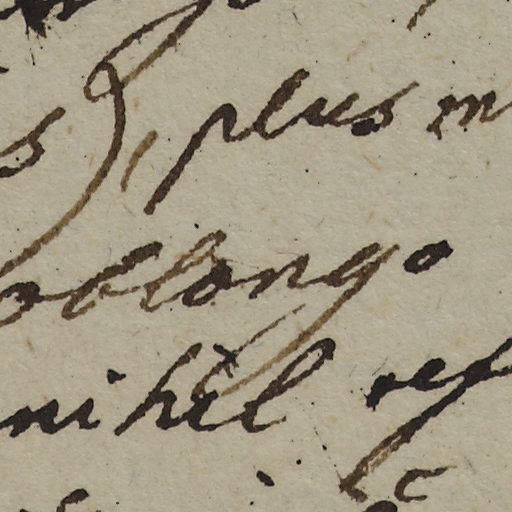 s), plus m
oblongo
nihil ref